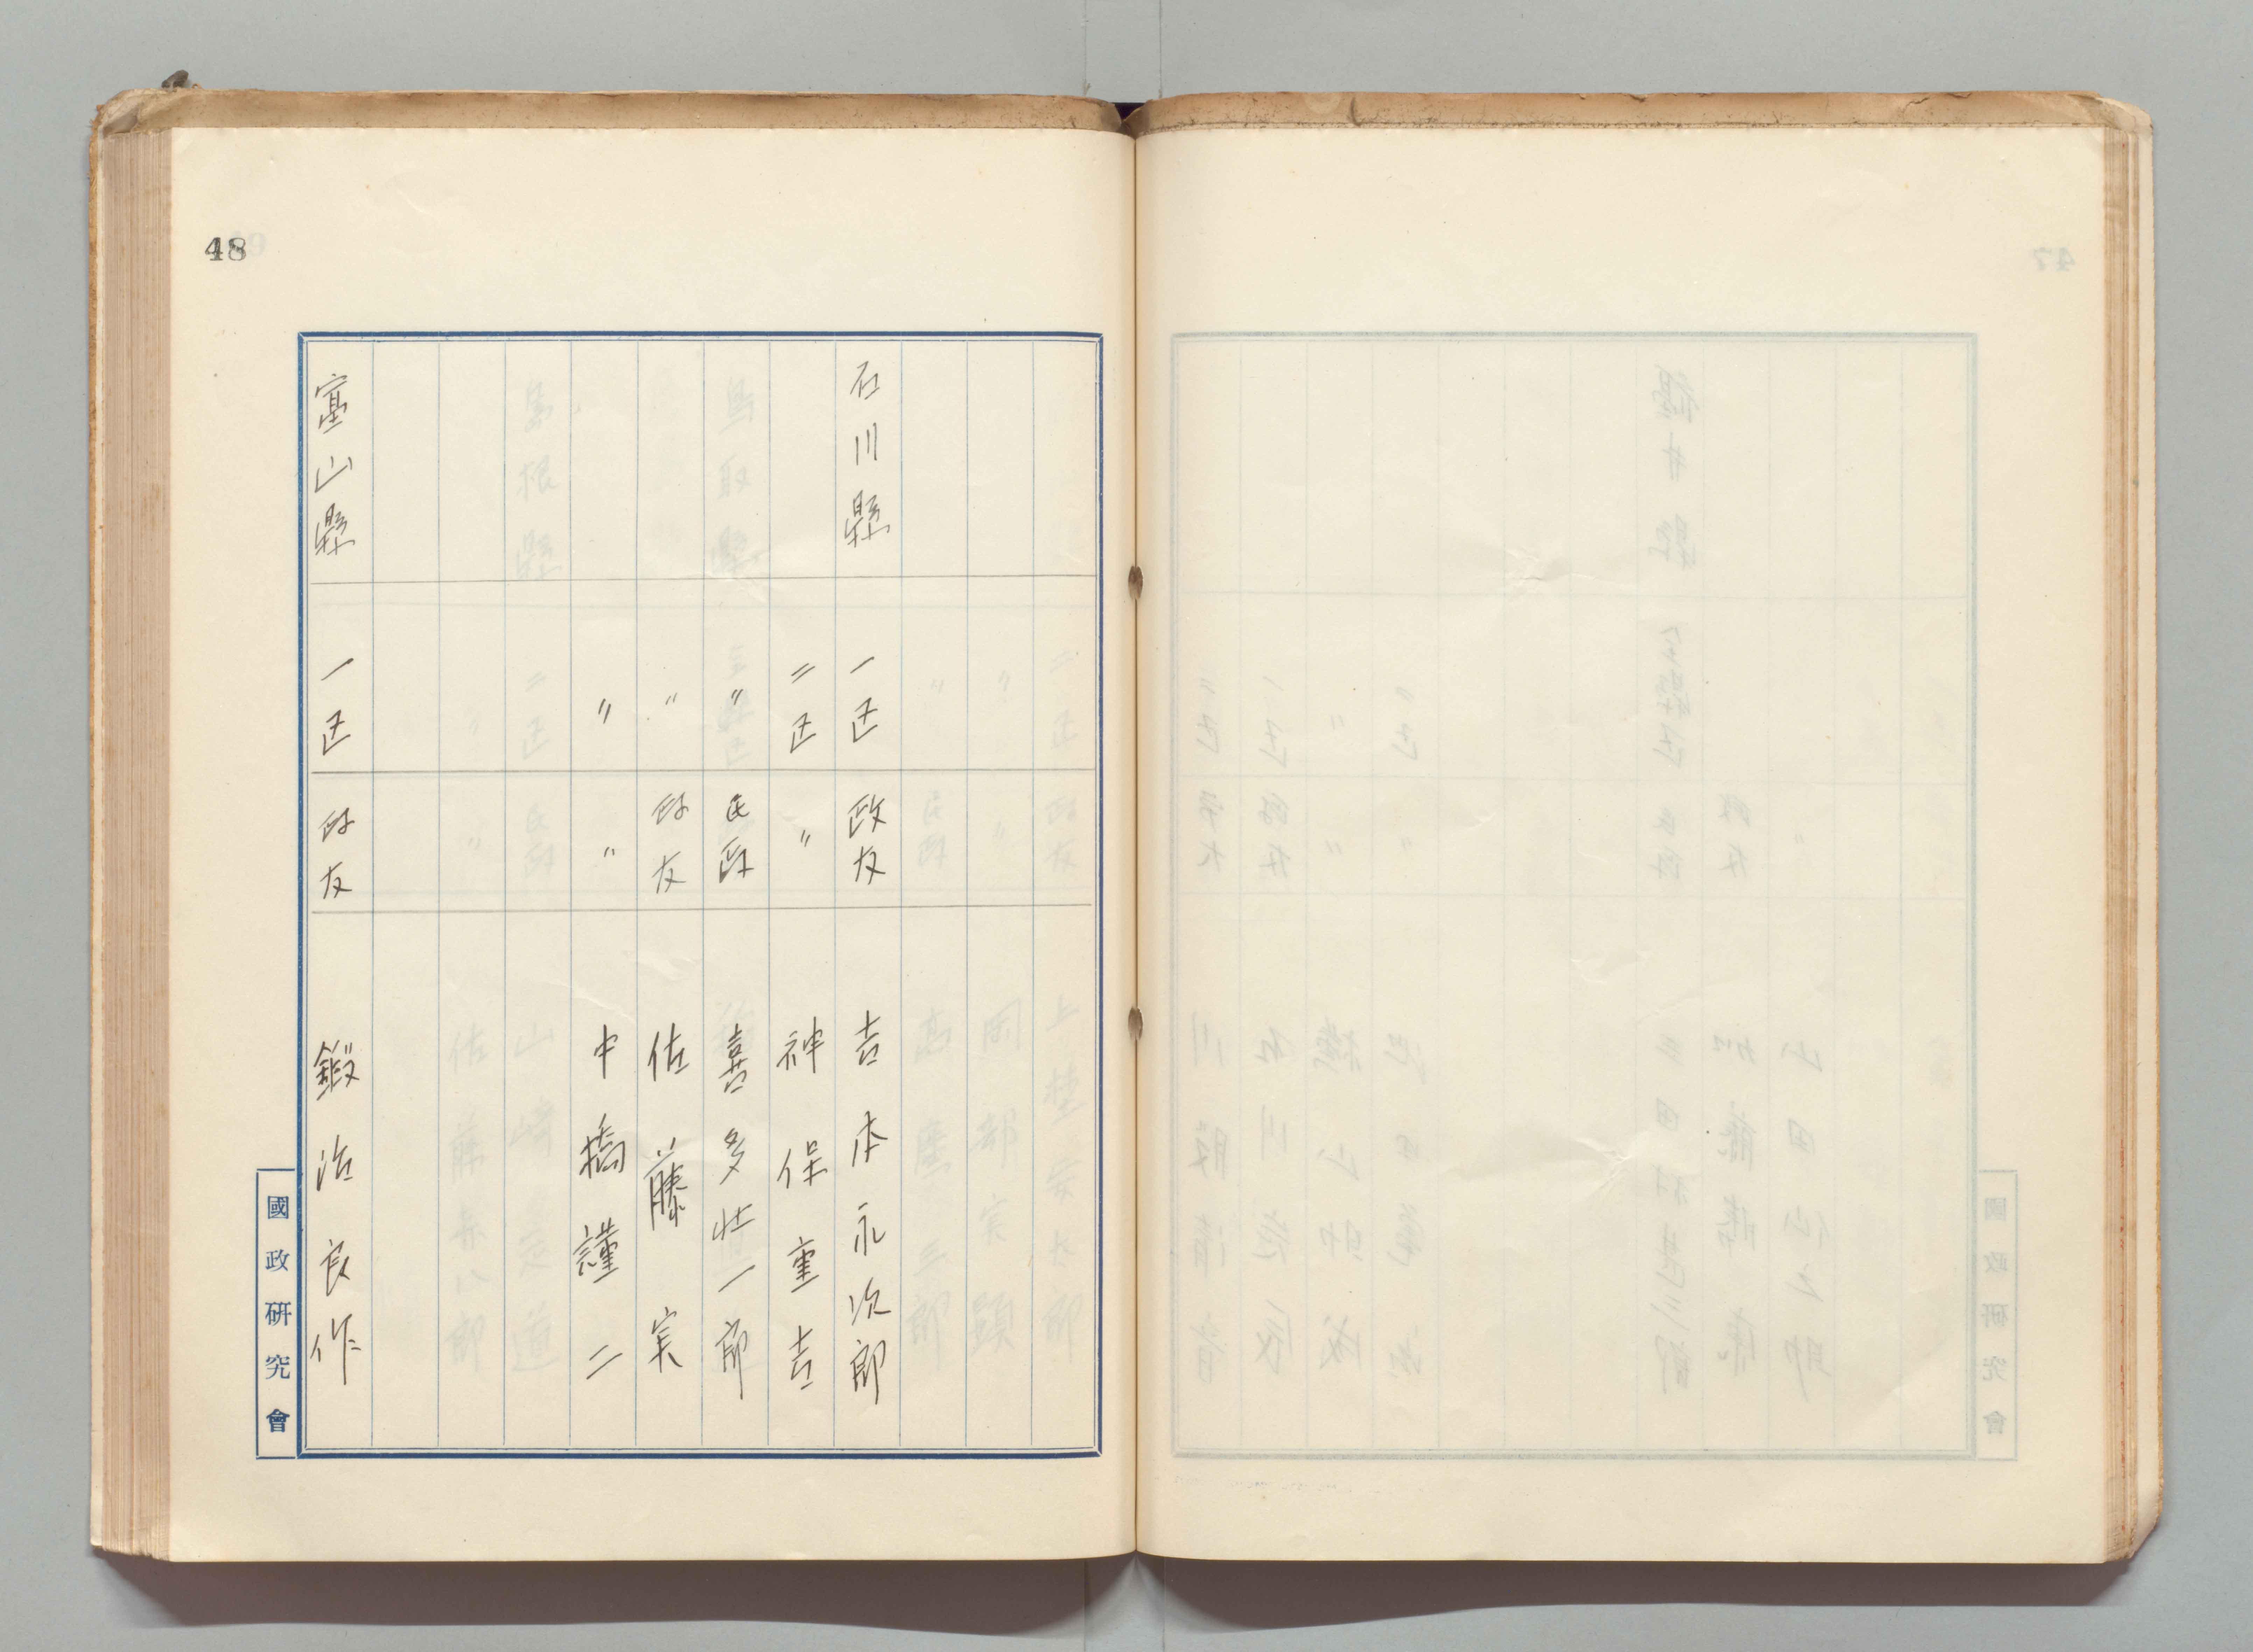 48
石川縣 一区 政友 吉本永次郎
二区 〃 神保重吉
〃 民政 喜多壮一郎
〃 政友 佐藤実
〃 〃 中橋謹二
富山縣 一区 政友 鍛治良作
國政研究會